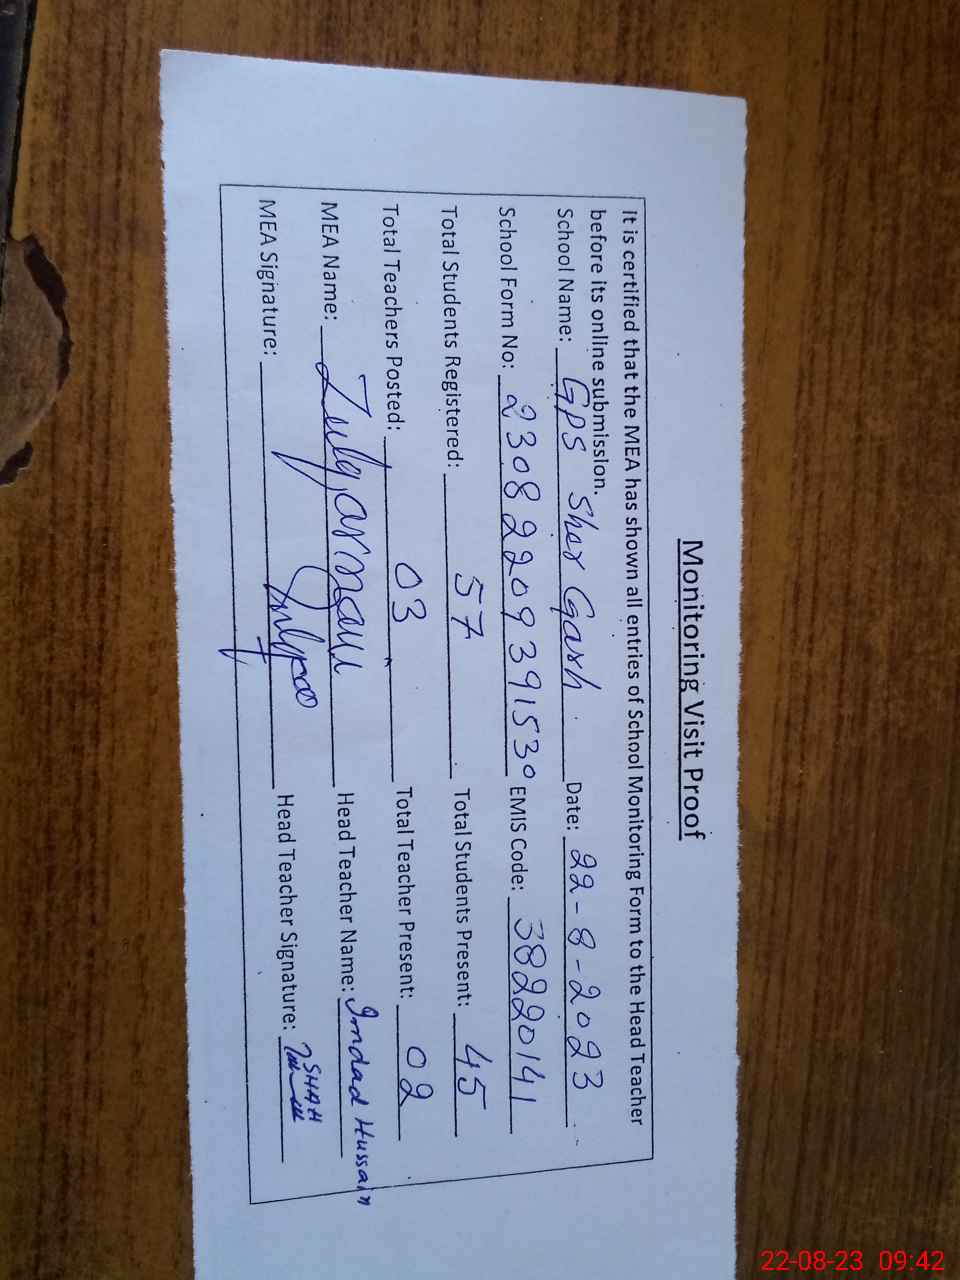 Monitoring Visit Proof
It is certified that the MEA has shown all entries of School Monitoring Form to the Head Teacher
before its online submission.
School Name: GPS Sher Garh Date: 22-8-2023
School Form No: 23082209391530 EMIS Code: 38220141
Total Students Registered: 57 Total Students Present: 45
Total Teachers Posted: 03 Total Teacher Present: 02
MEA Name: Zulqarnain Head Teacher Name: Imdad Hussain
SHAH
MEA Signature: Head Teacher Signature:
22-08-23 09:42